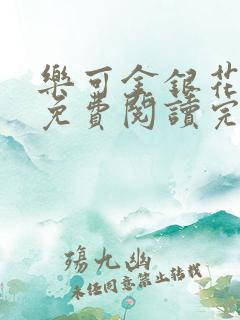 樂可金銀花
免費閱讀完
殤九幽
未经同意禁止转载